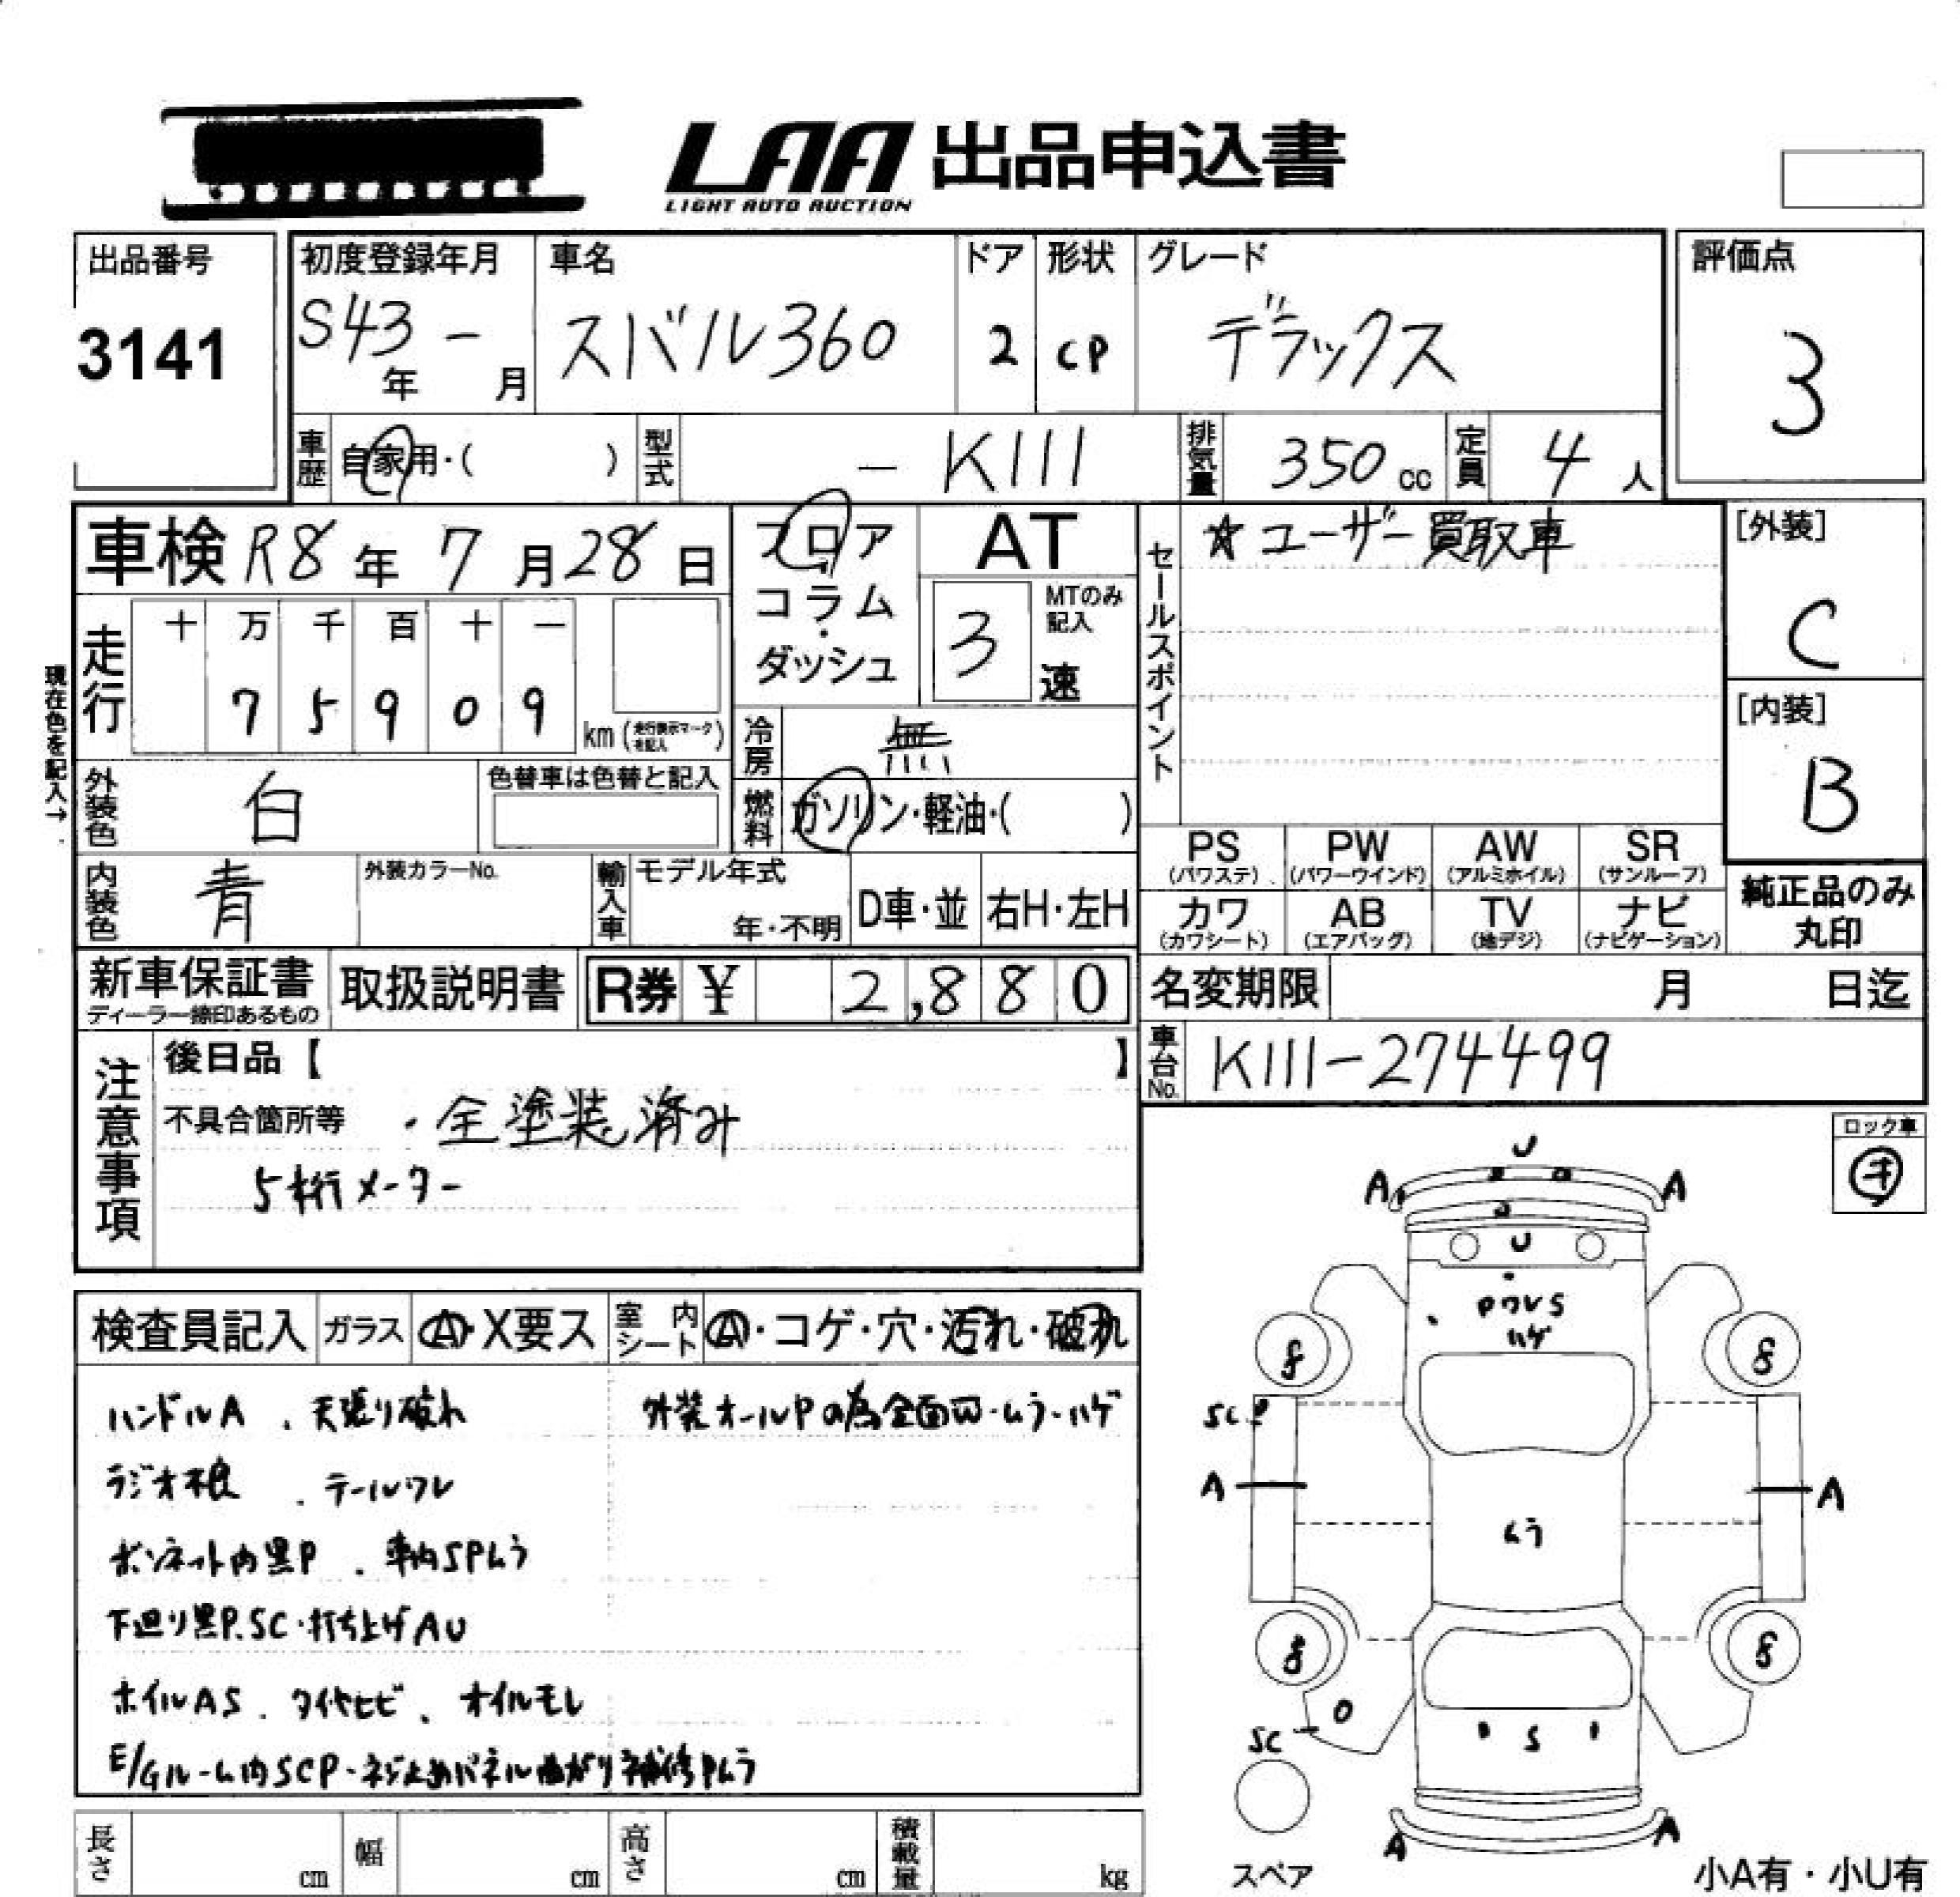 LAA 出品申込書
LIGHT AUTO AUCTION
出品番号
3141
初度登録年月
S43年 - 月
車名
スバル360
ドア
2
形状
CP
グレード
デラックス
評価点
3
車歴
自家用・( )
型式
- K111
排気量
350 cc
定員
4人
車検 R8年7月28日
現在色を記入→
走行
十 万 千 百 十 一
7 5 9 0 9
km (走行表示マークを記入)
フロア
コラム
・
ダッシュ
AT
3
MTのみ記入
速
冷房
無
燃料
ガソリン・軽油・( )
セールスポイント
☆ユーザー買取車
[外装]
C
[内装]
B
外装色
白
色替車は色替と記入
内装色
青
外装カラーNo.
輸入車
モデル年式
年・不明
D車・並
右H・左H
PS
(パワステ)
PW
(パワーウインド)
AW
(アルミホイル)
SR
(サンルーフ)
カワ
(カワシート)
AB
(エアバッグ)
TV
(地デジ)
ナビ
(ナビゲーション)
純正品のみ
丸印
新車保証書
ディーラー捺印あるもの
取扱説明書
R券 ¥ 2,880
名変期限 月 日迄
車台No.
K111-274499
注意事項
後日品【 】
不具合箇所等 ・全塗装済み
5桁メーター
ロック車
キ
検査員記入
ガラス
A・X要ス
室内シート
A・コゲ・穴・汚れ・破れ
ハンドルA . 天張り破れ
外装オールPの為全面W・ムラ・ハゲ
ラジオ不良 . テールワレ
ボンネット内黒P . 車内SPムラ
下廻り黒P.SC・打ち上げAU
ホイルAS . タイヤヒビ . オイルモレ
E/Gルーム内SCP・ネジ止めパネル曲がり補修Pムラ
U
A
A
U
PワレS
ハゲ
8
8
SC
A
A
ムラ
8
8
SC
S
A
A
スペア
小A有・小U有
長さ
cm
幅
cm
高さ
cm
積載量
kg